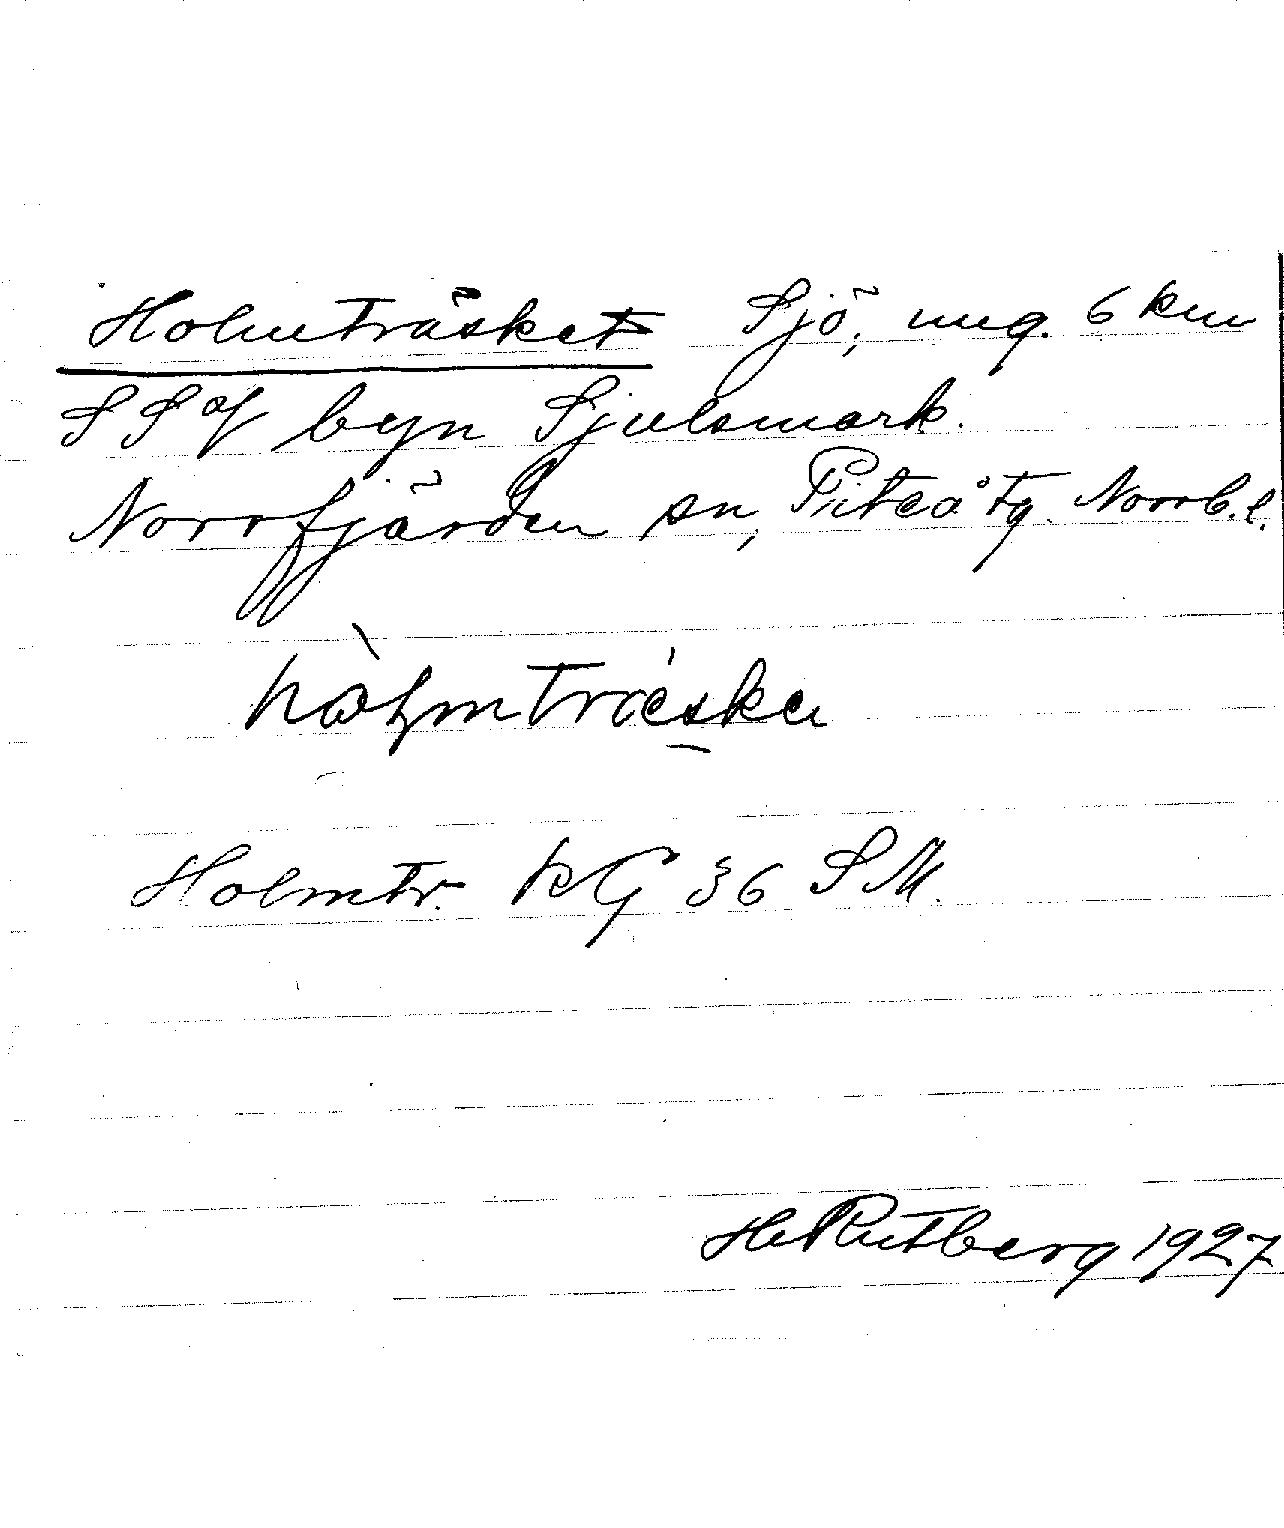 Holmträsket Sjö, ung. 6 km
SSV byn Sjulsmark.
Norrfjärden sn, Piteå tg. Norrb. l.
hòlmtræ̀ska
Holmtr. KG 36 SM.
H Rutberg 1927